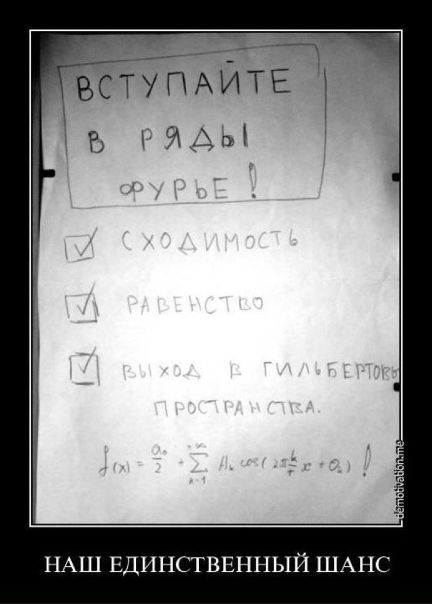 ВСТУПАЙТЕ
В РЯДЫ
ФУРЬЕ!
СХОДИМОСТЬ
РАВЕНСТВО
ВЫХОД В ГИЛЬБЕРТОВЫ
ПРОСТРАНСТВА.
f(x) = a₀/2 + Σ_{k=1}^{+∞} Aₖ cos(2π k/τ x + θₖ)!
demotivation.me
НАШ ЕДИНСТВЕННЫЙ ШАНС